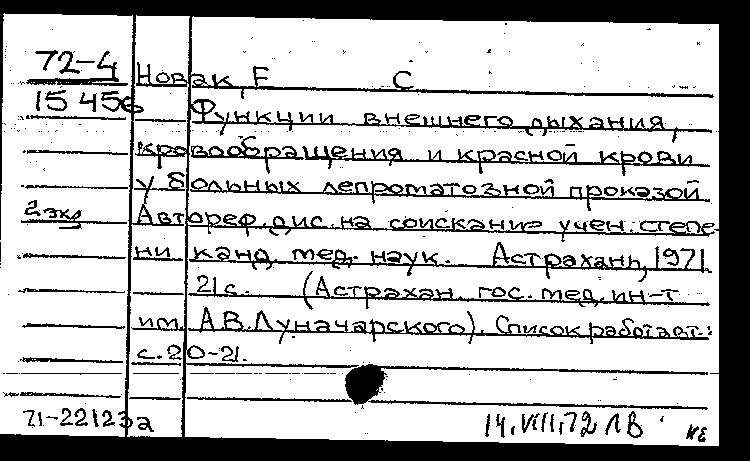 72-4 Новак, Е С
15 456
Функции внешнего дыхания,
кровообращения и красной крови
у больных лепроматозной проказой
2 экз Автореф. дис. на соискание учен. степе-
ни канд. мед. наук. Астрахань, 1971.
21 с. (Астрахан. гос. мед. ин-т
им. А.В. Луначарского). Список работ авт.:
с. 20-21.
71-22123а 14.VIII.72 ЛВ НЕ